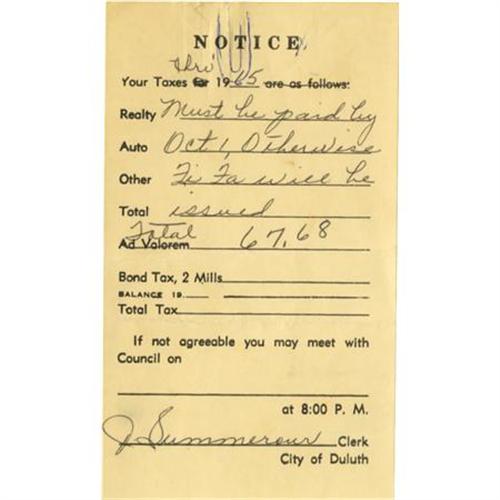 NOTICE
thri
Your Taxes for 1965 are as follows:
Realty Must be paid by
Auto Oct 1, Otherwise
Other Fi Fa will be
Total issued
Total
Ad Valorem 67.68
Bond Tax, 2 Mills
BALANCE 19
Total Tax
If not agreeable you may meet with
Council on
at 8:00 P. M.
J Summerour Clerk
City of Duluth